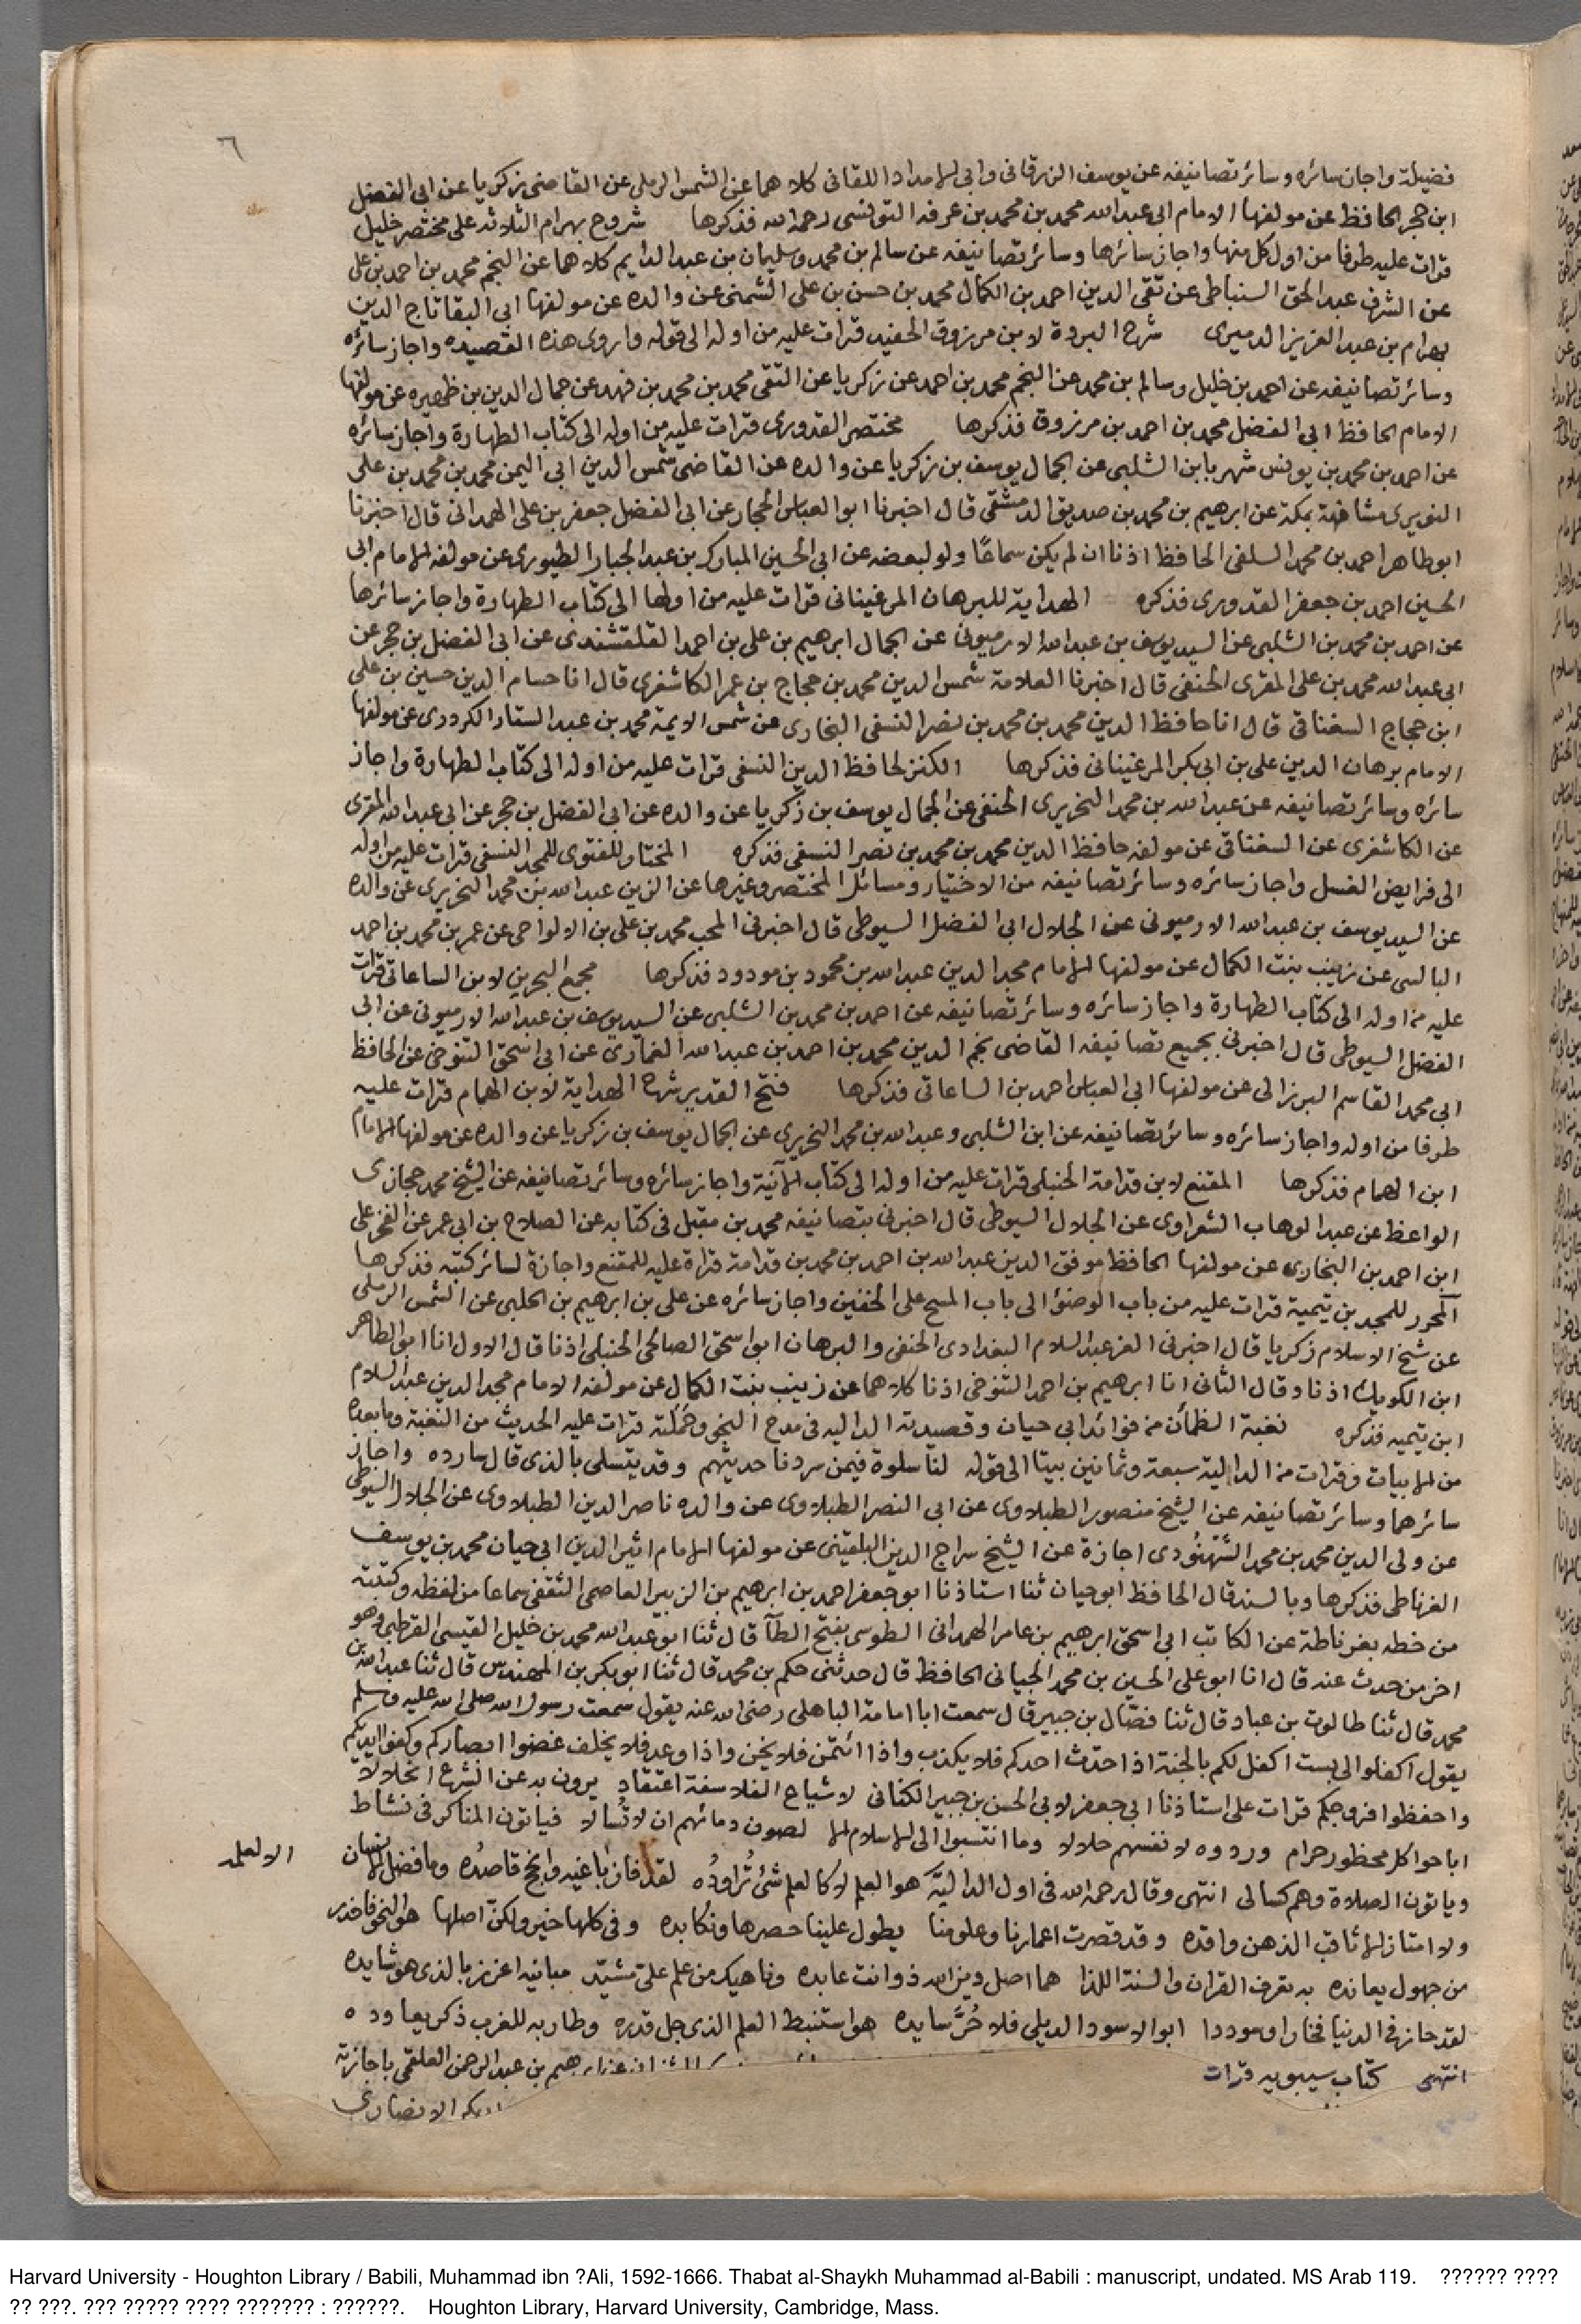 ٦
فضيلة واجاز سائره وسائر تصانيفه عن يوسف الزرقانى وابى الامداد اللقانى كلاهما عن الشمس الرملى عن القاضى زكريا عن ابى الفضل
ابن حجر الحافظ عن مولفها الامام ابى عبدالله محمد بن محمد بن عرفه التونسى رحمه الله فذكرها شروح بهرام الثلاثه على مختصر خليل
قرات عليه طرفا من اول كل منها واجاز سائرها وسائر تصانيفه عن سالم بن محمد وسليمان بن عبد الدايم كلاهما عن النجم محمد بن احمد بن على
عن الشرف عبد الحق السنباطى عن تقى الدين احمد بن الكمال محمد بن حسن بن على الشمنى عن والده عن مولفها ابى البقا تاج الدين
بهرام بن عبد العزيز الدميرى شرح البردة لابن مرزوق الحفيد قرات عليه من اوله الى قوله واروى هذه القصيده واجاز سائره
وسائر تصانيفه عن احمد بن خليل وسالم بن محمد عن النجم محمد بن احمد عن زكريا عن التقى محمد بن محمد بن فهد عن جمال الدين بن ظهيره عن مولفها
الامام الحافظ ابى الفضل محمد بن احمد بن مرزوق فذكرها مختصر القدورى قرات عليه من اوله الى كتاب الطهارة واجاز سائره
عن احمد بن محمد بن يونس شهر بابن الشلبى عن الجمال يوسف بن زكريا عن والده عن القاضى شمس الدين ابى اليمن محمد بن محمد بن على
النويرى مشافهة بمكة عن ابرهيم بن محمد بن صديق الدمشقى قال اخبرنا ابو العباس الحجار عن ابى الفضل جعفر بن على الهمدانى قال اخبرنا
ابو طاهر احمد بن محمد السلفى الحافظ اذنا ان لم يكن سماعًا ولو لبعضه عن ابى الحسين المبارك بن عبد الجبار الطيورى عن مولفه الامام ابى
الحسين احمد بن جعفر القدورى فذكره الهداية للبرهان المرغينانى قرات عليه من اولها الى كتاب الطهارة واجاز سائرها
عن احمد بن محمد بن الشلبى عن السيد يوسف بن عبدالله الارميونى عن الجمال ابرهيم بن على بن احمد القلقشندى عن ابى الفضل بن حجر عن
ابى عبدالله محمد بن على المقرى الحنفى قال اخبرنا العلامة شمس الدين محمد بن حجاج بن عمر الكاشغرى قال انا حسام الدين حسين بن على
ابن حجاج السغناقى قال انا حافظ الدين محمد بن محمد بن نصر النسفى البخارى عن شمس الايمة محمد بن عبد الستار الكردرى عن مولفها
الامام برهان الدين على بن ابى بكر المرغينانى فذكرها الكنز لحافظ الدين النسفى قرات عليه من اوله الى كتاب الطهارة واجاز
سائره وسائر تصانيفه عن عبدالله بن محمد النحريرى الحنفى عن الجمال يوسف بن زكريا عن والده عن ابى الفضل بن حجر عن ابى عبدالله المقرى
عن الكاشغرى عن السغناقى عن مولفه حافظ الدين محمد بن محمد بن نصر النسفى فذكره المختار للفتوى للمجد النسفى قرات عليه من اوله
الى فرايض الغسل واجاز سائره وسائر تصانيفه من الاختيار ومسائل المختصر وغيرها عن الزين عبدالله بن محمد النحريرى عن والده
عن السيد يوسف بن عبدالله الارميونى عن الجلال ابى الفضل السيوطى قال اخبرنى المحب محمد بن على بن الالواحى عن عمر بن محمد بن احمد
البالسى عن زينب بنت الكمال عن مولفها الامام مجد الدين عبدالله بن محمود بن مودود فذكرها مجمع البحرين لابن الساعاتى قرات
عليه من اوله الى كتاب الطهارة واجاز سائره وسائر تصانيفه عن احمد بن محمد بن الشلبى عن السيد يوسف بن عبدالله الارميونى عن ابى
الفضل السيوطى قال اخبرنى بجميع تصانيفه القاضى نجم الدين محمد بن احمد بن عبدالله الغمازى عن ابى اسحق التنوخى عن الحافظ
ابى محمد القاسم البرزالى عن مولفها ابى العباس احمد بن الساعاتى فذكرها فتح القدير شرح الهداية لابن الهمام قرات عليه
طرفا من اوله واجاز سائره وسائر تصانيفه عن ابن الشلبى وعبدالله بن محمد النحريرى عن الجمال يوسف بن زكريا عن والده عن مولفها الامام
ابن الهمام فذكرها المقنع لابن قدامة الحنبلى قرات عليه من اوله الى كتاب الآنية واجاز سائره وسائر تصانيفه عن الشيخ محمد حجازى
الواعظ عن عبد الوهاب الشعراوى عن الجلال السيوطى قال اخبرنى بتصانيفه محمد بن مقبل فى كتابه عن الصلاح بن ابى عمر عن الفخر على
ابن احمد بن البخارى عن مولفها الحافظ موفق الدين عبدالله بن احمد بن محمد بن قدامة قراة عليه للمقنع واجازة لسائر كتبه فذكرها
المحرر للمجد بن تيمية قرات عليه من باب الوضؤ الى باب المسح على الخفين واجاز سائره عن على بن ابرهيم بن الحلبى عن الشمس الرملى
عن شيخ الاسلام زكريا قال اخبرنى العز عبد السلام البغدادى الحنفى والبرهان ابو اسحق الصالحى الحنبلى اذنا قال الاول انا ابو الطاهر
ابن الكويك اذنا وقال الثانى انا ابرهيم بن احمد التنوخى اذنا كلاهما عن زينب بنت الكمال عن مولفه الامام مجد الدين عبد السلام
ابن تيميه فذكره نغبة الظمآن من فوائد ابى حيان وقصيدته الداليه فى مدح النحو وخملته قرات عليه الحديث من النغبة وما بعده
من الابيات وقرات من الدالية سبعة وثمانين بيتا الى قوله لنا سلوة فيمن سردنا حديثهم وقد يتسلى بالذى قال سارده واجاز
سائرهما وسائر تصانيفه عن الشيخ منصور الطبلاوى عن ابى النصر الطبلاوى عن والده ناصر الدين الطبلاوى عن الجلال السيوطى
عن ولى الدين محمد بن محمد السَّنْهُودى اجازة عن الشيخ سراج الدين البلقينى عن مولفها الامام اثير الدين ابى حيان محمد بن يوسف
الغرناطى فذكرها وبالسند قال الحافظ ابو حيان ثنا استاذنا ابو جعفر احمد بن ابرهيم بن الزبير العاصمى الثقفى سماعا من لفظه وكتبته
من خطه بغرناطة عن الكاتب ابى اسحق ابرهيم بن عامر الهمدانى الطوسى بفتح الطآ قال ثنا ابو عبدالله محمد بن خليل القيسى القرطبى وهو
اخر من حدث عنه قال انا ابو على الحسين بن محمد الجيانى الحافظ قال حدثنى حكم بن محمد قال ثنا ابو بكر بن المهندس قال ثنا عبدالله بن
محمد قال ثنا طالوت بن عباد قال ثنا فضّال بن جبير قال سمعت ابا امامة الباهلى رضى الله عنه يقول سمعت رسول الله صلى الله عليه وسلم
يقول اكفلوا لى بست اكفل لكم بالجنة اذا حدّث احدكم فلا يكذب واذا ائتمن فلا يخن واذا وعد فلا يخلف غضوا ابصاركم وكفوا ايديكم
واحفظوا فروجكم قرات على استاذنا ابى جعفر لابى الحسن بن جبير الكنانى لاشياع الفلاسفة اعتقاد يرون به عن الشرع انحلالا
اباحوا كل محظور حرام وردوه لانفسهم حلالا وما انتسبوا الى الاسلام الا لصون دمائهم ان لا تُسالا فياتون المناكر فى نشاط
وياتون الصلاة وهم كسالى انتهى وقال رحمه الله فى اول الداليّة هو العلم لا كالعلم شئ تُراودُه لقد فاز باغيه وانجح قاصدُه وما فضل الانسان
الا لعلمه
ولا امتاز الا ثاقب الذهن واقده وقد قصرت اعمارنا وعلومنا يطول علينا حصرها ونكابده وفى كلها خير ولكنّ اصلها هو النحو فاحذر
من جهول يعانده به تعرف القران والسنة اللذا هما اصل دين الله ذو انت عابده وناهيك من علم علىّ مشيّد مبانيه اعزز بالذى هو شايده
لقد حاز فى الدنيا فخارا وسوددا ابو الاسود الديلى فلا حُرَّ سايده هو استنبط العلم الذى جل قدره وطار به للعرب ذكر يعاوده
انتهى كتاب سيبويه قرات ابرهيم بن عبد الرحمن العلقمى باجازته
الانصارى
Harvard University - Houghton Library / Babili, Muhammad ibn ?Ali, 1592-1666. Thabat al-Shaykh Muhammad al-Babili : manuscript, undated. MS Arab 119. ?????? ????
?? ???. ??? ????? ???? ??????? : ??????. Houghton Library, Harvard University, Cambridge, Mass.